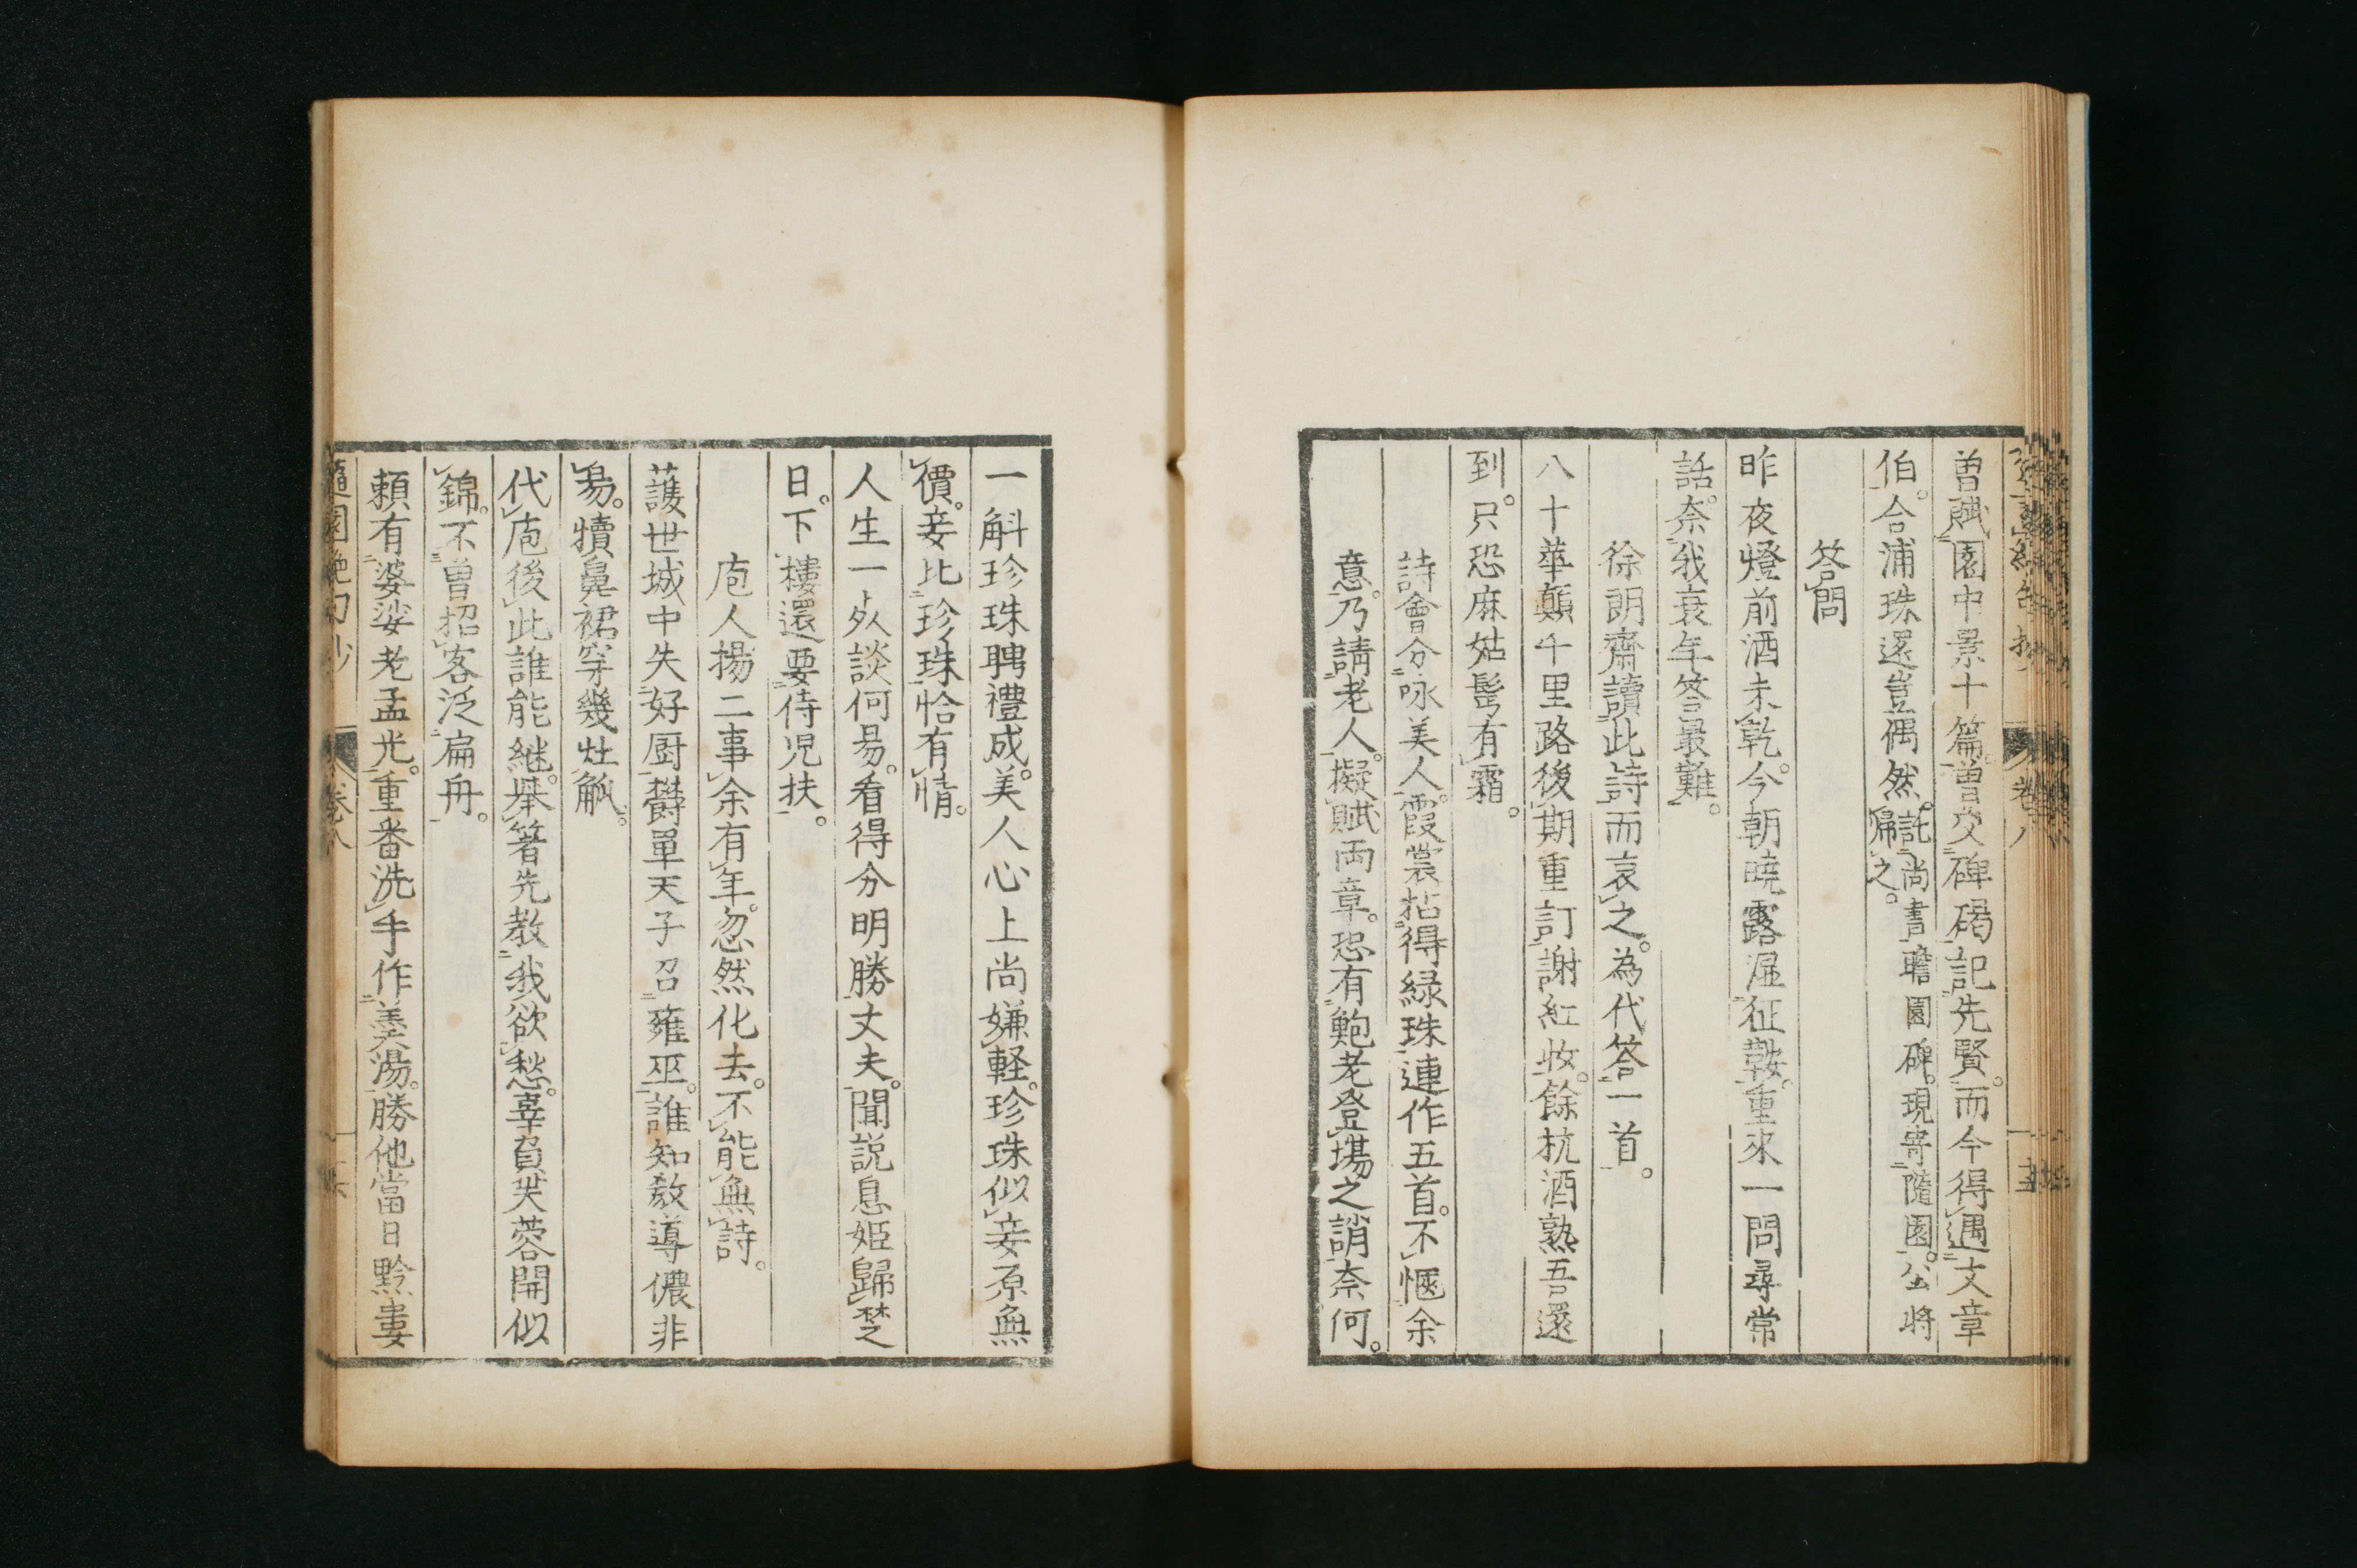 曽賦園中景十篇。曽交碑碣記先賢。而今得遇文章
伯。合浦珠還豈偶然。託尚書瞻園碑。現寄隨園。公將
歸之。
答問
昨夜燈前酒未乾。今朝曉露溼征鞍。重來一問尋常
話。奈我衰年答最難。
徐朗齋讀此詩而哀之。為代答一首。
八十華顛千里路後期重訂謝紅妝。餘杭酒熟吾還
到。只恐麻姑髩有霜。
詩會分咏美人。霞裳拈得緑珠連作五首。不愜余
意。乃請老人。擬賦両章。恐有鮑老登塲之誚奈何。
卷八
十五
一斛珍珠聘禮成。美人心上尚嫌軽。珍珠似妾原無
價。妾比珍珠恰有情。
人生一死談何易。看得分明勝丈夫。聞説息姫歸楚
日。下樓還要侍児扶。
庖人揚二事余有年。忽然化去。不能無詩。
護世城中失好厨。欝單天子召雍巫。誰知教導儂非
易。犢鼻裙穿幾灶觚。
代庖後此誰能継。舉箸先教我欲愁。辜負芙蓉開似
錦。不曽招客泛扁舟。
頼有婆娑老孟光。重番洗手作羮湯。勝他當日黔婁
隨園絶句抄
卷八